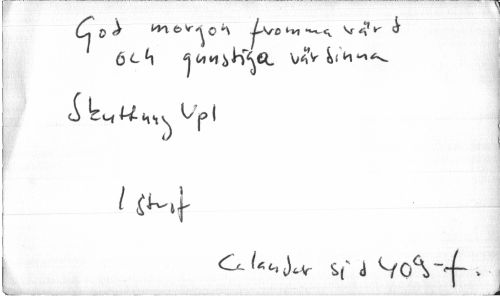 God morgon fromma värd
och gunstiga värdinna
Skuttung Upl
1 strof
Celander sid 409-f.